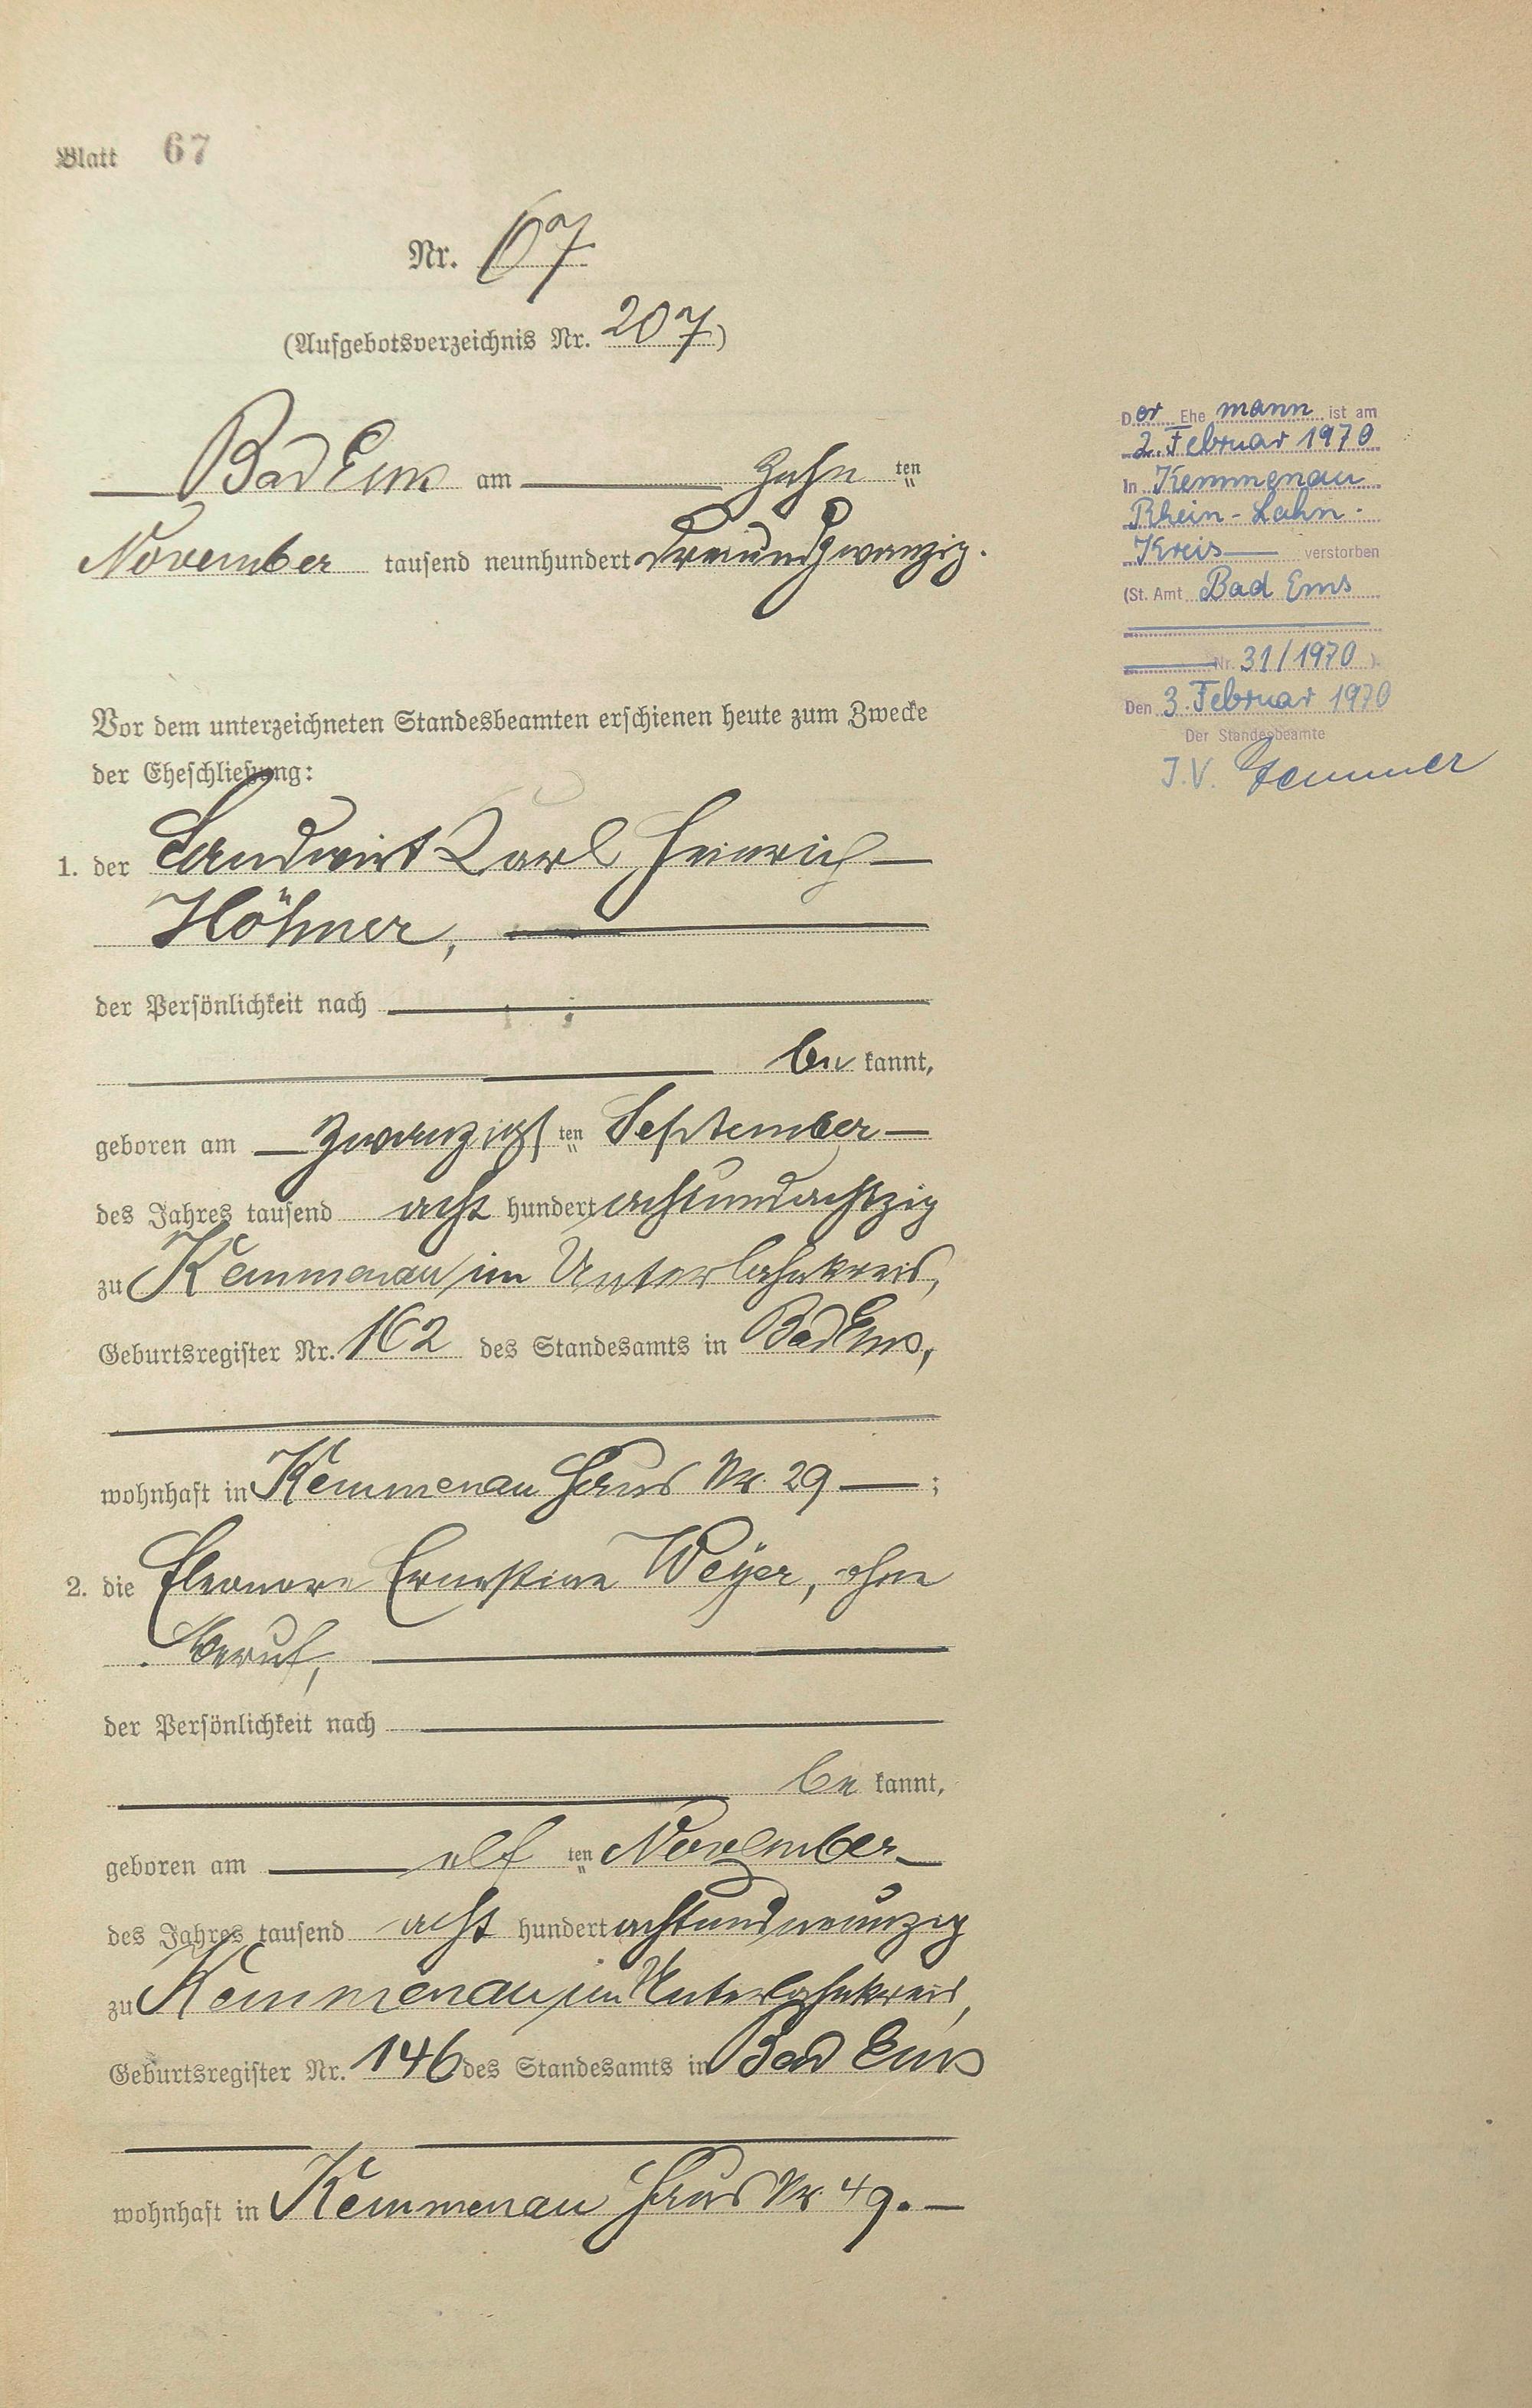 Blatt 67
Nr. 67
(Aufgebotsverzeichnis Nr. 207)
Bad Ems am zehn ten
November tausend neunhundert dreiundzwanzig.
Vor dem unterzeichneten Standesbeamten erschienen heute zum Zwecke
der Eheschließung:
1. der Landwirt Karl Heinrich
Höhner,
der Persönlichkeit nach
be kannt,
geboren am zwanzigs ten September
des Jahres tausend acht hundert achtundachtzig
zu Kemmenau im Unterlahnkreis,
Geburtsregister Nr. 162 des Standesamts in Bad Ems,
wohnhaft in Kemmenau Haus Nr. 29 ;
2. die Eleonore Ernestine Weyer, ohne
Beruf,
der Persönlichkeit nach
be kannt,
geboren am elf ten November
des Jahres tausend acht hundert achtundneunzig
zu Kemmenau im Unterlahnkreis,
Geburtsregister Nr. 146 des Standesamts in Bad Ems
wohnhaft in Kemmenau Haus Nr. 49.
Der Ehemann ist am
2. Februar 1970
in Kemmenau
Rhein-Lahn-
Kreis verstorben
(St. Amt Bad Ems
Nr. 31/1970 ).
Den 3. Februar 1970
Der Standesbeamte
I.V.